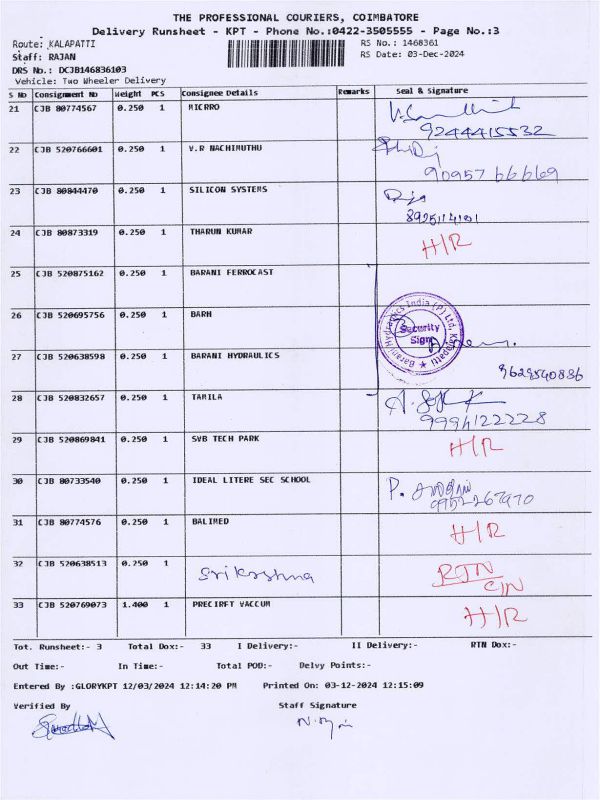 THE PROFESSIONAL COURIERS, COIMBATORE
Delivery Runsheet - KPT - Phone No.:0422-3505555 - Page No.:3
Route: KALAPATTI RS No.: 1468361
Staff: RAJAN RS Date: 03-Dec-2024
DRS No.: DCJB146836103
Vehicle: Two Wheeler Delivery
S No Consignment No Weight PCS Consignee Details Remarks Seal & Signature
21 CJB 80774567 0.250 1 MICRRO
9244415532
22 CJB 520766601 0.250 1 V.R NACHIMUTHU
90957 66669
23 CJB 80844470 0.250 1 SILICON SYSTEMS
24 CJB 80873319 0.250 1 THARUN KUMAR H/R
25 CJB 520875162 0.250 1 BARANI FERROCAST
26 CJB 520695756 0.250 1 BARH
Barani Hydraulics India (P) Ltd, Kalapatti ★
Security
Sign
27 CJB 520638598 0.250 1 BARANI HYDRAULICS
9629540836
28 CJB 520832657 0.250 1 TAMILA
9994122228
29 CJB 520869841 0.250 1 SVB TECH PARK H/R
30 CJB 80733540 0.250 1 IDEAL LITERE SEC SCHOOL P.
31 CJB 80774576 0.250 1 BALIMED H/R
32 CJB 520638513 0.250 1 Srikrshna RTN
C/N
33 CJB 520769073 1.400 1 PRECIRFT VACCUM H/R
Tot. Runsheet:- 3 Total Dox:- 33 I Delivery:- II Delivery:- RTN Dox:-
Out Time:- In Time:- Total POD:- Delvy Points:-
Entered By :GLORYKPT 12/03/2024 12:14:20 PM Printed On: 03-12-2024 12:15:09
Verified By Staff Signature